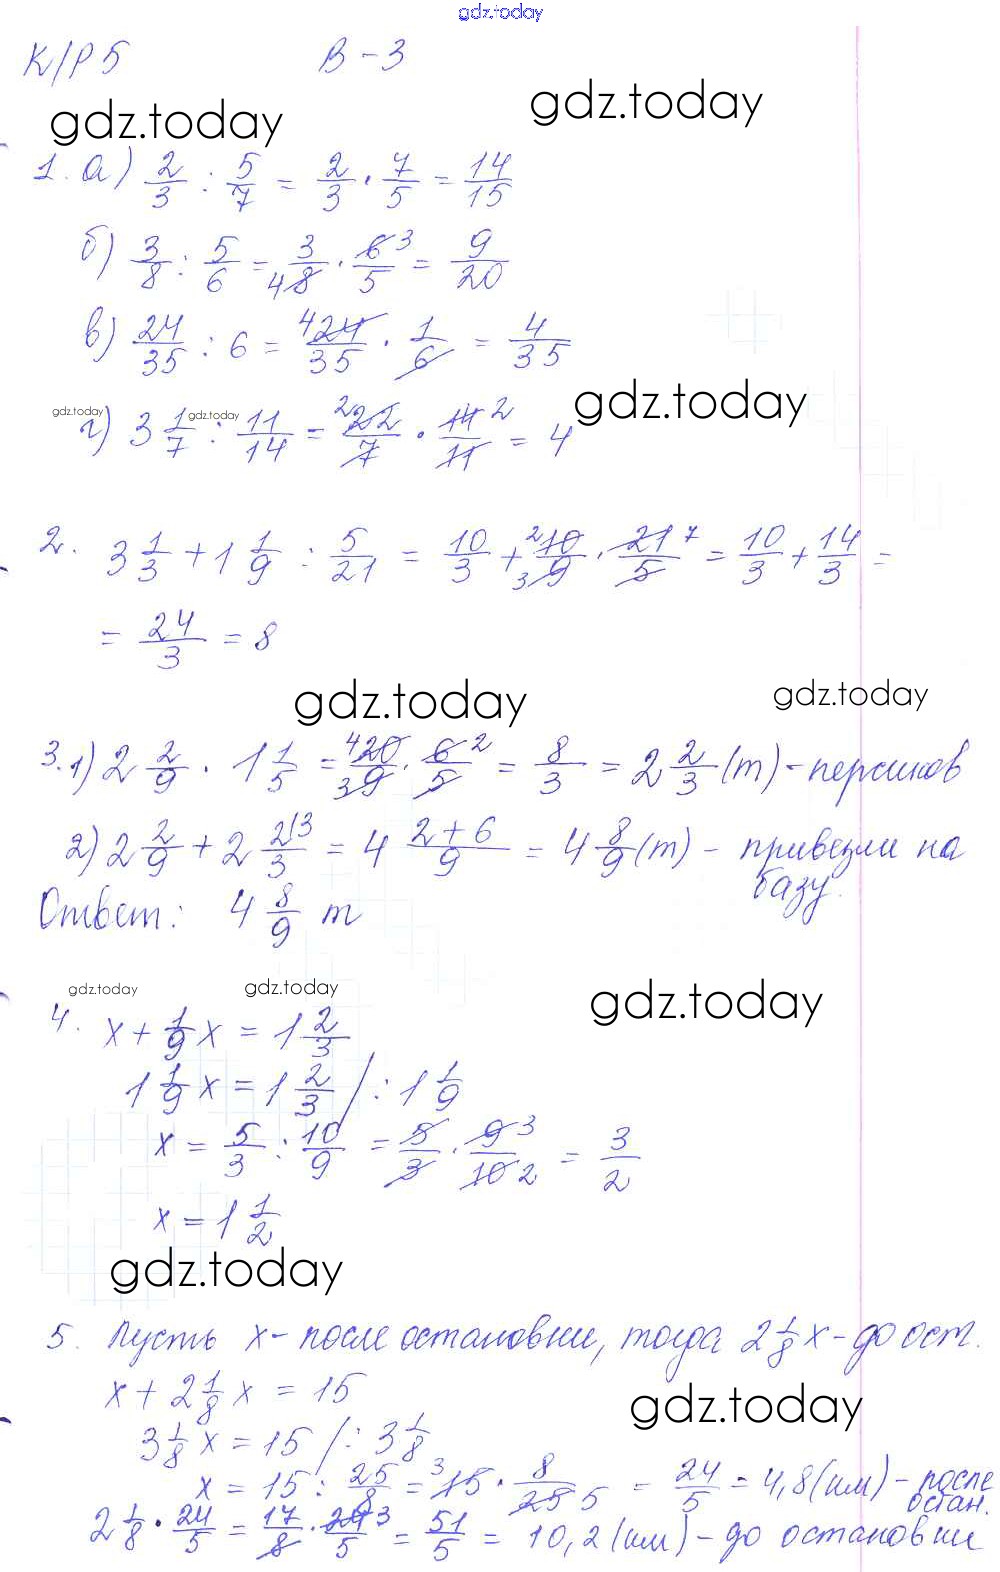 gdz.today
К/Р 5 В - 3
gdz.today gdz.today
1. а) 2/3 : 5/7 = 2/3 · 7/5 = 14/15
б) 3/8 : 5/6 = 3/8 4 · 6/5 3 = 9/20
в) 24/35 : 6 = 4 24/35 · 1/6 = 4/35
gdz.today gdz.today gdz.today
г) 3 1/7 : 11/14 = 2 22/7 · 14/11 2 = 4
2. 3 1/3 + 1 1/9 : 5/21 = 10/3 + 2 10/9 3 · 21/5 7 = 10/3 + 14/3 =
= 24/3 = 8
gdz.today gdz.today
3. 1) 2 2/9 · 1 1/5 = 4 20/9 3 · 6/5 2 = 8/3 = 2 2/3 (т) - персиков
2) 2 2/9 + 2 2/3 |3 = 4 2+6/9 = 4 8/9 (т) - привезли на
базу.
Ответ: 4 8/9 т
gdz.today gdz.today gdz.today
4. x + 1/9 x = 1 2/3
1 1/9 x = 1 2/3 / : 1 1/9
x = 5/3 : 10/9 = 5/3 · 9/10 3 2 = 3/2
x = 1 1/2
gdz.today
5. Пусть x - после остановки, тогда 2 1/8 x - до ост.
x + 2 1/8 x = 15
gdz.today
3 1/8 x = 15 / : 3 1/8
x = 15 : 25/8 = 3 15 · 8/25 5 = 24/5 = 4,8 (км) - после
остан.
2 1/8 · 24/5 = 17/8 · 24/5 3 = 51/5 = 10,2 (км) - до остановки